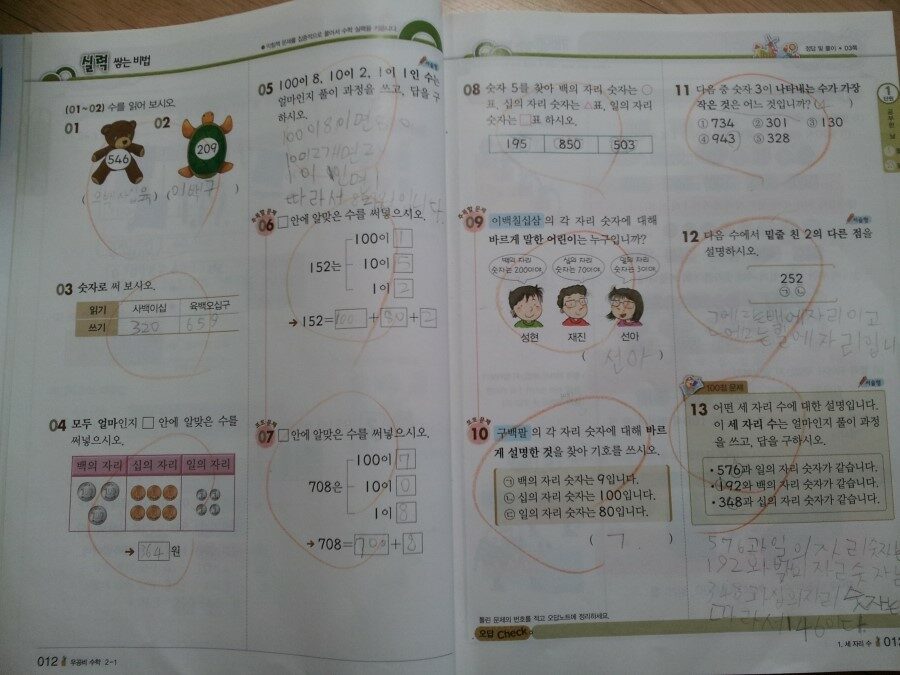 실력 쌓는 비법
• 익힘책 문제를 집중적으로 풀어서 수학 실력을 키웁니다.
(01~02) 수를 읽어 보시오.
01 02
546 209
( ) ( 이백구 )
03 숫자로 써 보시오.
읽기 사백이십 육백오십구
쓰기 320 659
04 모두 얼마인지 □ 안에 알맞은 수를
써넣으시오.
백의 자리 십의 자리 일의 자리
→ 364 원
012 우공비 수학 2-1
서술형
05 100이 8, 10이 2, 1이 1인 수는
얼마인지 풀이 과정을 쓰고, 답을 구
하시오.
100이 8이면
10이 2개면
1이
따라서
06 □ 안에 알맞은 수를 써넣으시오.
100이 1
152는 10이 5
1이 2
→ 152= 100 + 50 + 2
07 □ 안에 알맞은 수를 써넣으시오.
100이 7
708은 10이 0
1이 8
→ 708= 700 + 8
정답 및 풀이 • 03쪽
08 숫자 5를 찾아 백의 자리 숫자는 ○
표, 십의 자리 숫자는 △표, 일의 자리
숫자는 □표 하시오.
195 850 503
09 이백칠십삼 의 각 자리 숫자에 대해
바르게 말한 어린이는 누구입니까?
백의 자리 숫자는 200이야.
십의 자리 숫자는 70이야.
일의 자리 숫자는 3이야.
성현 재진 선아
( 선아 )
10 구백팔 의 각 자리 숫자에 대해 바르
게 설명한 것을 찾아 기호를 쓰시오.
㉠ 백의 자리 숫자는 9입니다.
㉡ 십의 자리 숫자는 100입니다.
㉢ 일의 자리 숫자는 80입니다.
( ㄱ )
틀린 문제의 번호를 적고 오답노트에 정리하세요.
오답 Check
11 다음 중 숫자 3이 나타내는 수가 가장
작은 것은 어느 것입니까? ( 4 )
① 734 ② 301 ③ 130
④ 943 ⑤ 328
서술형
12 다음 수에서 밑줄 친 2의 다른 점을
설명하시오.
252
㉠ ㉡
100점 문제
서술형
13 어떤 세 자리 수에 대한 설명입니다.
이 세 자리 수는 얼마인지 풀이 과정
을 쓰고, 답을 구하시오.
• 576과 일의 자리 숫자가 같습니다.
• 192와 백의 자리 숫자가 같습니다.
• 348과 십의 자리 숫자가 같습니다.
576과 일의 자리 숫자
192와 백의
348과 십의 자리 숫자
따라서 146이다
1 단원
1. 세 자리 수